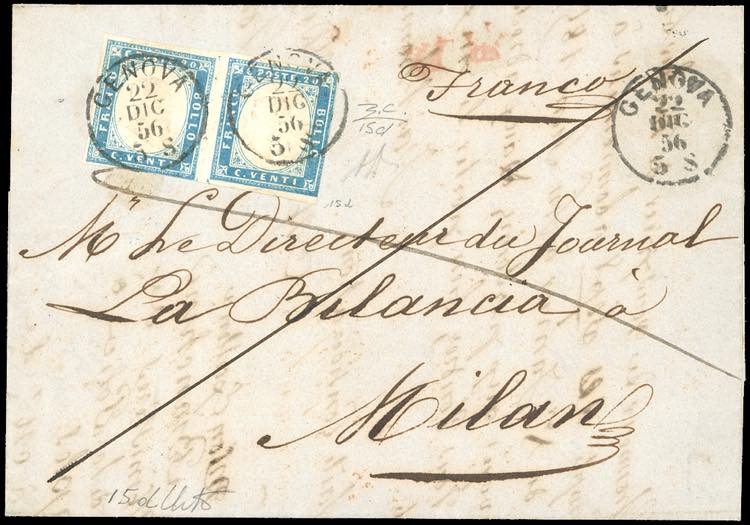 C. POSTE 20
FRANCO BOLLO
C. VENTI
C. POSTE 20
FRANCO BOLLO
C. VENTI
GENOVA
22
DIC
56
5 S
GENOVA
22
DIC
56
5 S
GENOVA
22
DIC
56
5 S
Franco
15d
15d
Mr Le Directeur du Journal
La Bilancia à
Milan
15d